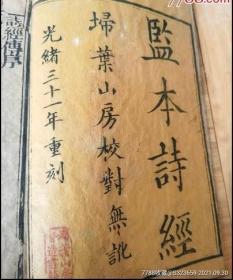 監本詩經
埽葉山房校對無訛
光緒三十一年重刻
詩經傳序
7788收藏@S323659 2021.09.30